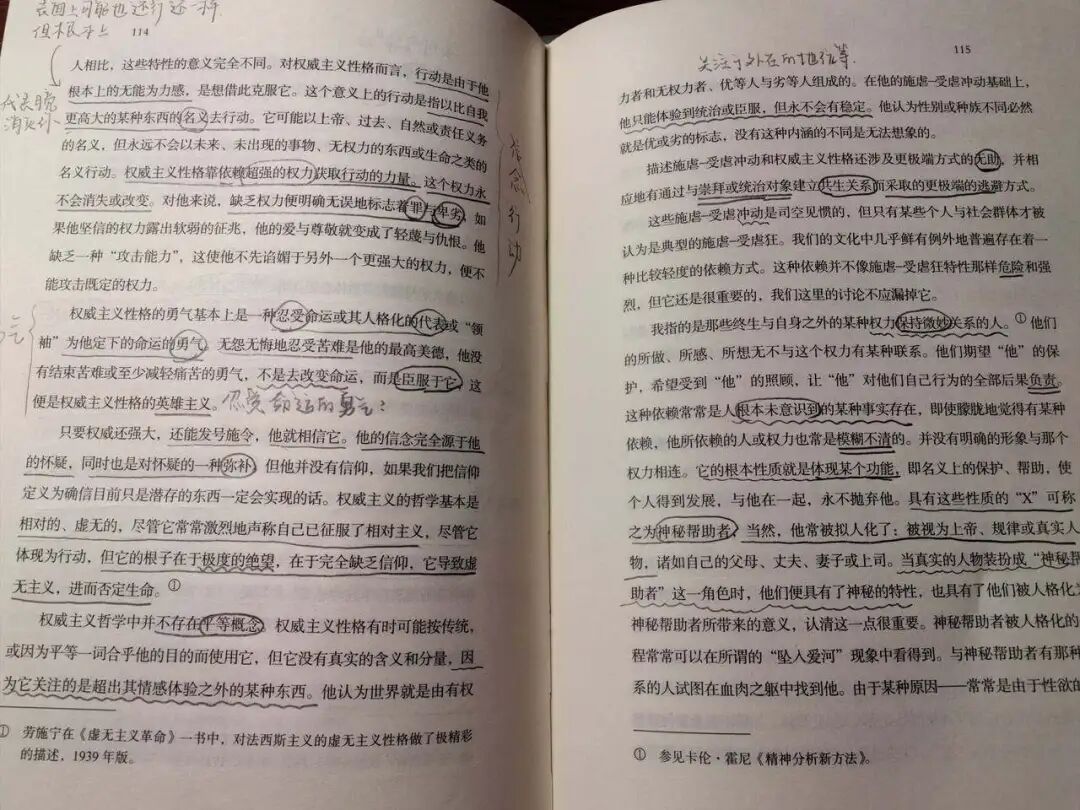 表面上可能也还行这一种
但根本上
114
人相比，这些特性的意义完全不同。对权威主义性格而言，行动是由于他
根本上的无能为力感，是想借此克服它。这个意义上的行动是指以比自我
更高大的某种东西的名义去行动。它可能以上帝、过去、自然或责任义务
的名义，但永远不会以未来、未出现的事物、无权力的东西或生命之类的
名义行动。权威主义性格靠依赖超强的权力获取行动的力量。这个权力永
不会消失或改变。对他来说，缺乏权力便明确无误地标志着罪与卑劣，如
果他坚信的权力露出软弱的征兆，他的爱与尊敬就变成了轻蔑与仇恨。他
缺乏一种“攻击能力”，这使他不先谄媚于另外一个更强大的权力，便不
能攻击既定的权力。
信念行动
权威主义性格的勇气基本上是一种忍受命运或其人格化的代表或“领
袖”为他定下的命运的勇气。无怨无悔地忍受苦难是他的最高美德，他没
有结束苦难或至少减轻痛苦的勇气，不是去改变命运，而是臣服于它，这
便是权威主义性格的英雄主义。忍受命运的勇气？
只要权威还强大，还能发号施令，他就相信它。他的信念完全源于他
的怀疑，同时也是对怀疑的一种弥补，但他并没有信仰，如果我们把信仰
定义为确信目前只是潜存的东西一定会实现的话。权威主义的哲学基本是
相对的、虚无的，尽管它常常激烈地声称自己已征服了相对主义，尽管它
体现为行动，但它的根子在于极度的绝望，在于完全缺乏信仰，它导致虚
无主义，进而否定生命。①
权威主义哲学中并不存在平等概念。权威主义性格有时可能按传统，
或因为平等一词合乎他的目的而使用它，但它没有真实的含义和分量，因
为它关注的是超出其情感体验之外的某种东西。他认为世界就是由有权
① 劳施宁在《虚无主义革命》一书中，对法西斯主义的虚无主义性格做了极精彩
的描述，1939年版。
关注于外在的
115
力者和无权力者、优等人与劣等人组成的。在他的施虐-受虐冲动基础上，
他只能体验到统治或臣服，但永不会有稳定。他认为性别或种族不同必然
就是优或劣的标志，没有这种内涵的不同是无法想象的。
描述施虐-受虐冲动和权威主义性格还涉及更极端方式的无助，并相
应地有通过与崇拜或统治对象建立共生关系而采取的更极端的逃避方式。
这些施虐-受虐冲动是司空见惯的，但只有某些个人与社会群体才被
认为是典型的施虐-受虐狂。我们的文化中几乎鲜有例外地普遍存在着一
种比较轻度的依赖方式。这种依赖并不像施虐-受虐狂特性那样危险和强
烈，但它还是很重要的，我们这里的讨论不应漏掉它。
我指的是那些终生与自身之外的某种权力保持微妙关系的人。①他们
的所做、所感、所想无不与这个权力有某种联系。他们期望“他”的保
护，希望受到“他”的照顾，让“他”对他们自己行为的全部后果负责。
这种依赖常常是人根本未意识到的某种事实存在，即使朦胧地觉得有某种
依赖，他所依赖的人或权力也常是模糊不清的。并没有明确的形象与那个
权力相连。它的根本性质就是体现某个功能，即名义上的保护、帮助，使
个人得到发展，与他在一起，永不抛弃他。具有这些性质的“X”可称
之为神秘帮助者，当然，他常被拟人化了：被视为上帝、规律或真实人
物，诸如自己的父母、丈夫、妻子或上司。当真实的人物装扮成“神秘帮
助者”这一角色时，他们便具有了神秘的特性，也具有了他们被人格化为
神秘帮助者所带来的意义，认清这一点很重要。神秘帮助者被人格化的
程常常可以在所谓的“坠入爱河”现象中看得到。与神秘帮助者有那种
系的人试图在血肉之躯中找到他。由于某种原因——常常是由于性欲的
① 参见卡伦·霍尼《精神分析新方法》。